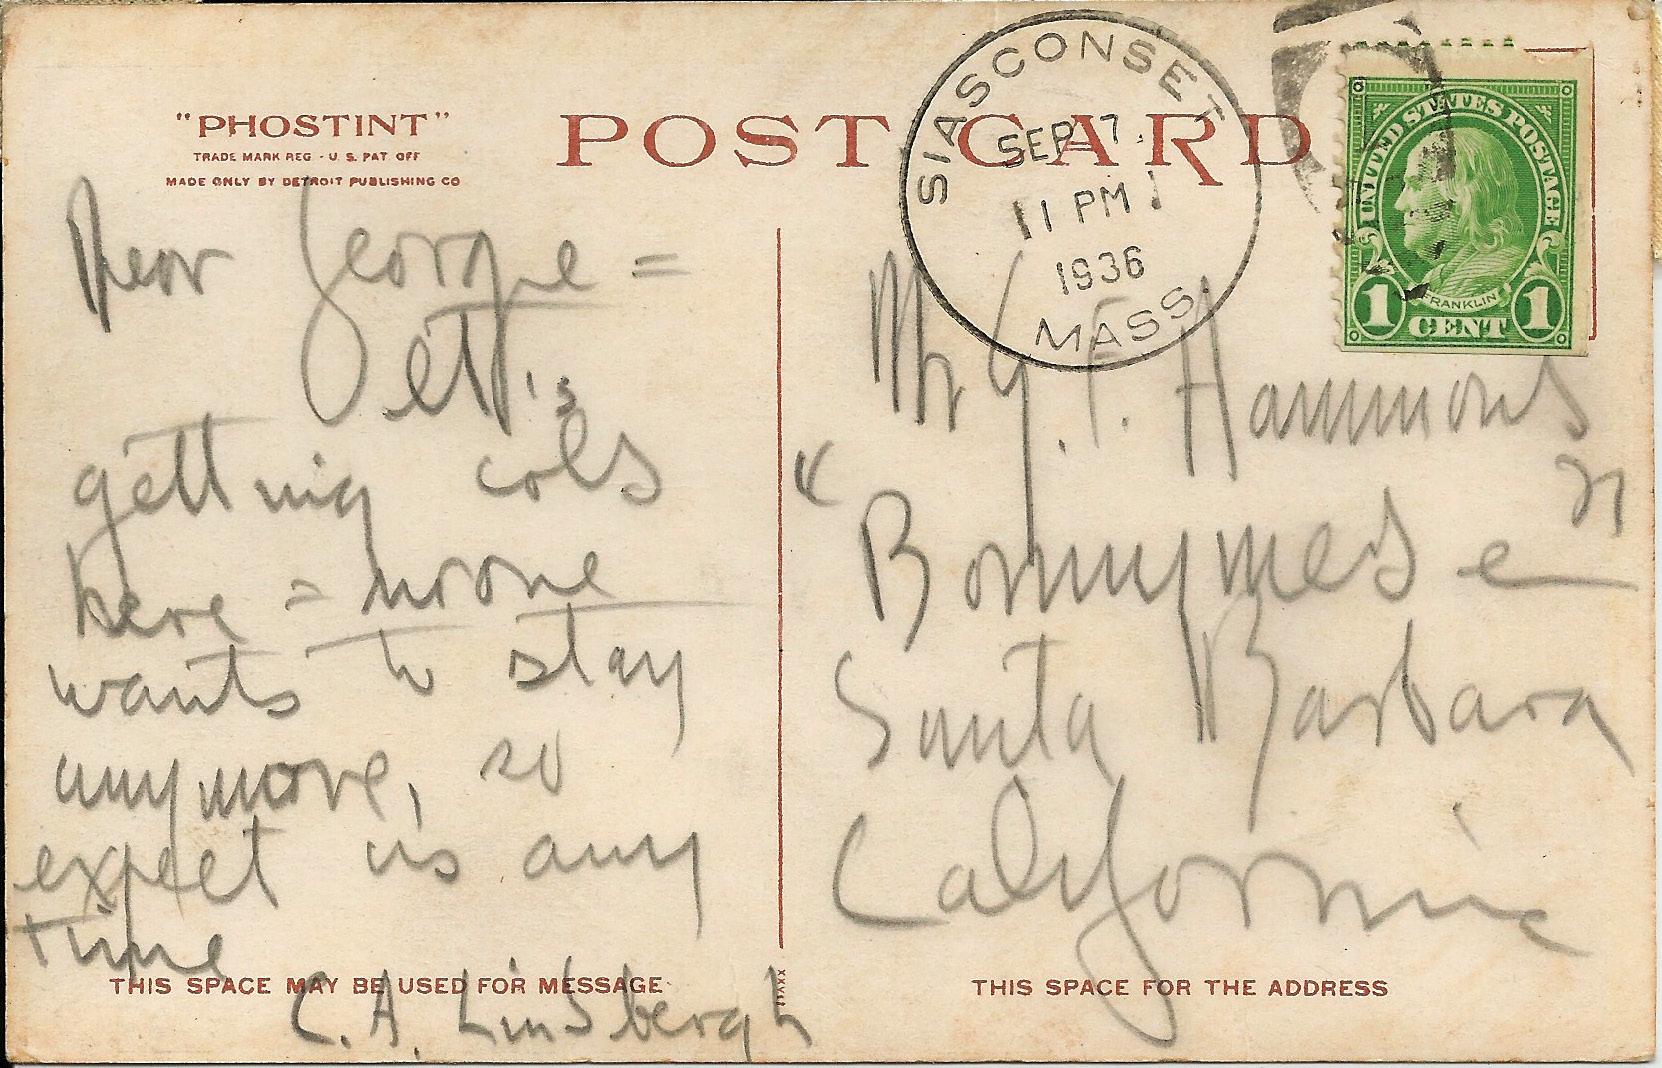 "PHOSTINT"
TRADE MARK REG - U. S. PAT OFF
MADE ONLY BY DETROIT PUBLISHING CO
POST CARD
SIASCONSET
SEP 7
11 PM
1936
MASS.
UNITED STATES POSTAGE
FRANKLIN
1 CENT 1
Dear George =
Jett's
getting cold
here = noone
wants to stay
anymore, so
expect us any
time
C. A. Lindbergh
Mr G. F. Hammond
"Bonnymede"
Santa Barbara
California
THIS SPACE MAY BE USED FOR MESSAGE
THIS SPACE FOR THE ADDRESS